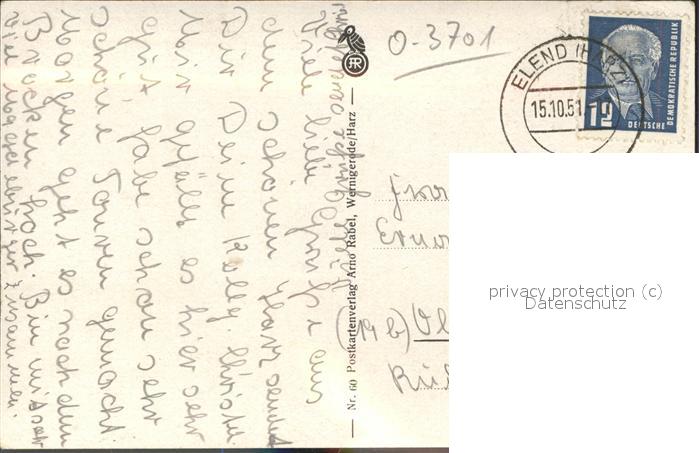 Viele liebe Grüße aus
dem schönen Harz sendet
Dir Deine Kolleg. Christel.
Mir gefällt es hier sehr
gut, habe schon sehr
schöne Touren gemacht.
Morgen geht es nach dem
Brocken hoch. Bin mit
zusammen.
Nr. 60 Postkartenverlag Arno Rabel, Wernigerode/Harz
R
O-3701
ELEND (HARZ)
15.10.51
12
DEUTSCHE
DEMOKRATISCHE REPUBLIK
Frau
(19b)
privacy protection (c)
Datenschutz